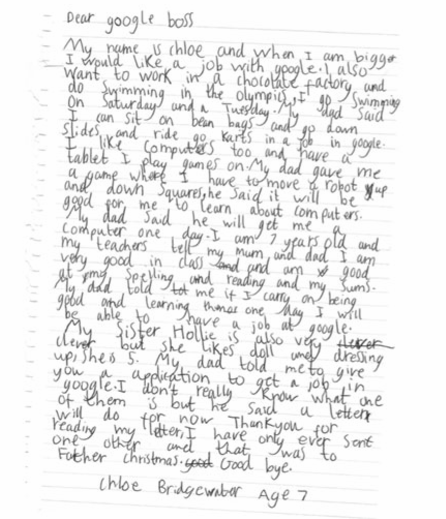 Dear google boss
My name is Chloe and when I am bigger
I would like a job with google. I also
want to work in a chocolate factory and
do swimming in the olympics, I go Swimming
on Saturday and a Tuesday. My dad said
I can sit on bean bags and go down
slides and ride go karts in a job in google.
I like computers too and have a
tablet I play games on. My dad gave me
a game where I have to move a robot up
and down squares, he said it will be
good for me to learn about computers.
My dad said he will get me a
computer one day. I am 7 years old and
my teachers tell my mum and dad I am
very good in class and am good
at my spelling and reading and my sums.
My dad told me if I carry on being
good and learning one day I will
be able to have a job at google.
My Sister Hollie is also very
clever but she likes doll dressing
up, she is 5. My dad told me to give
you a application to get a job in
google. I don't really know what one
of them is but he said a letter
will do for now Thankyou for
reading my letter, I have only ever sent
one other and that was to
Father christmas. Good bye.
Chloe Bridgewater Age 7